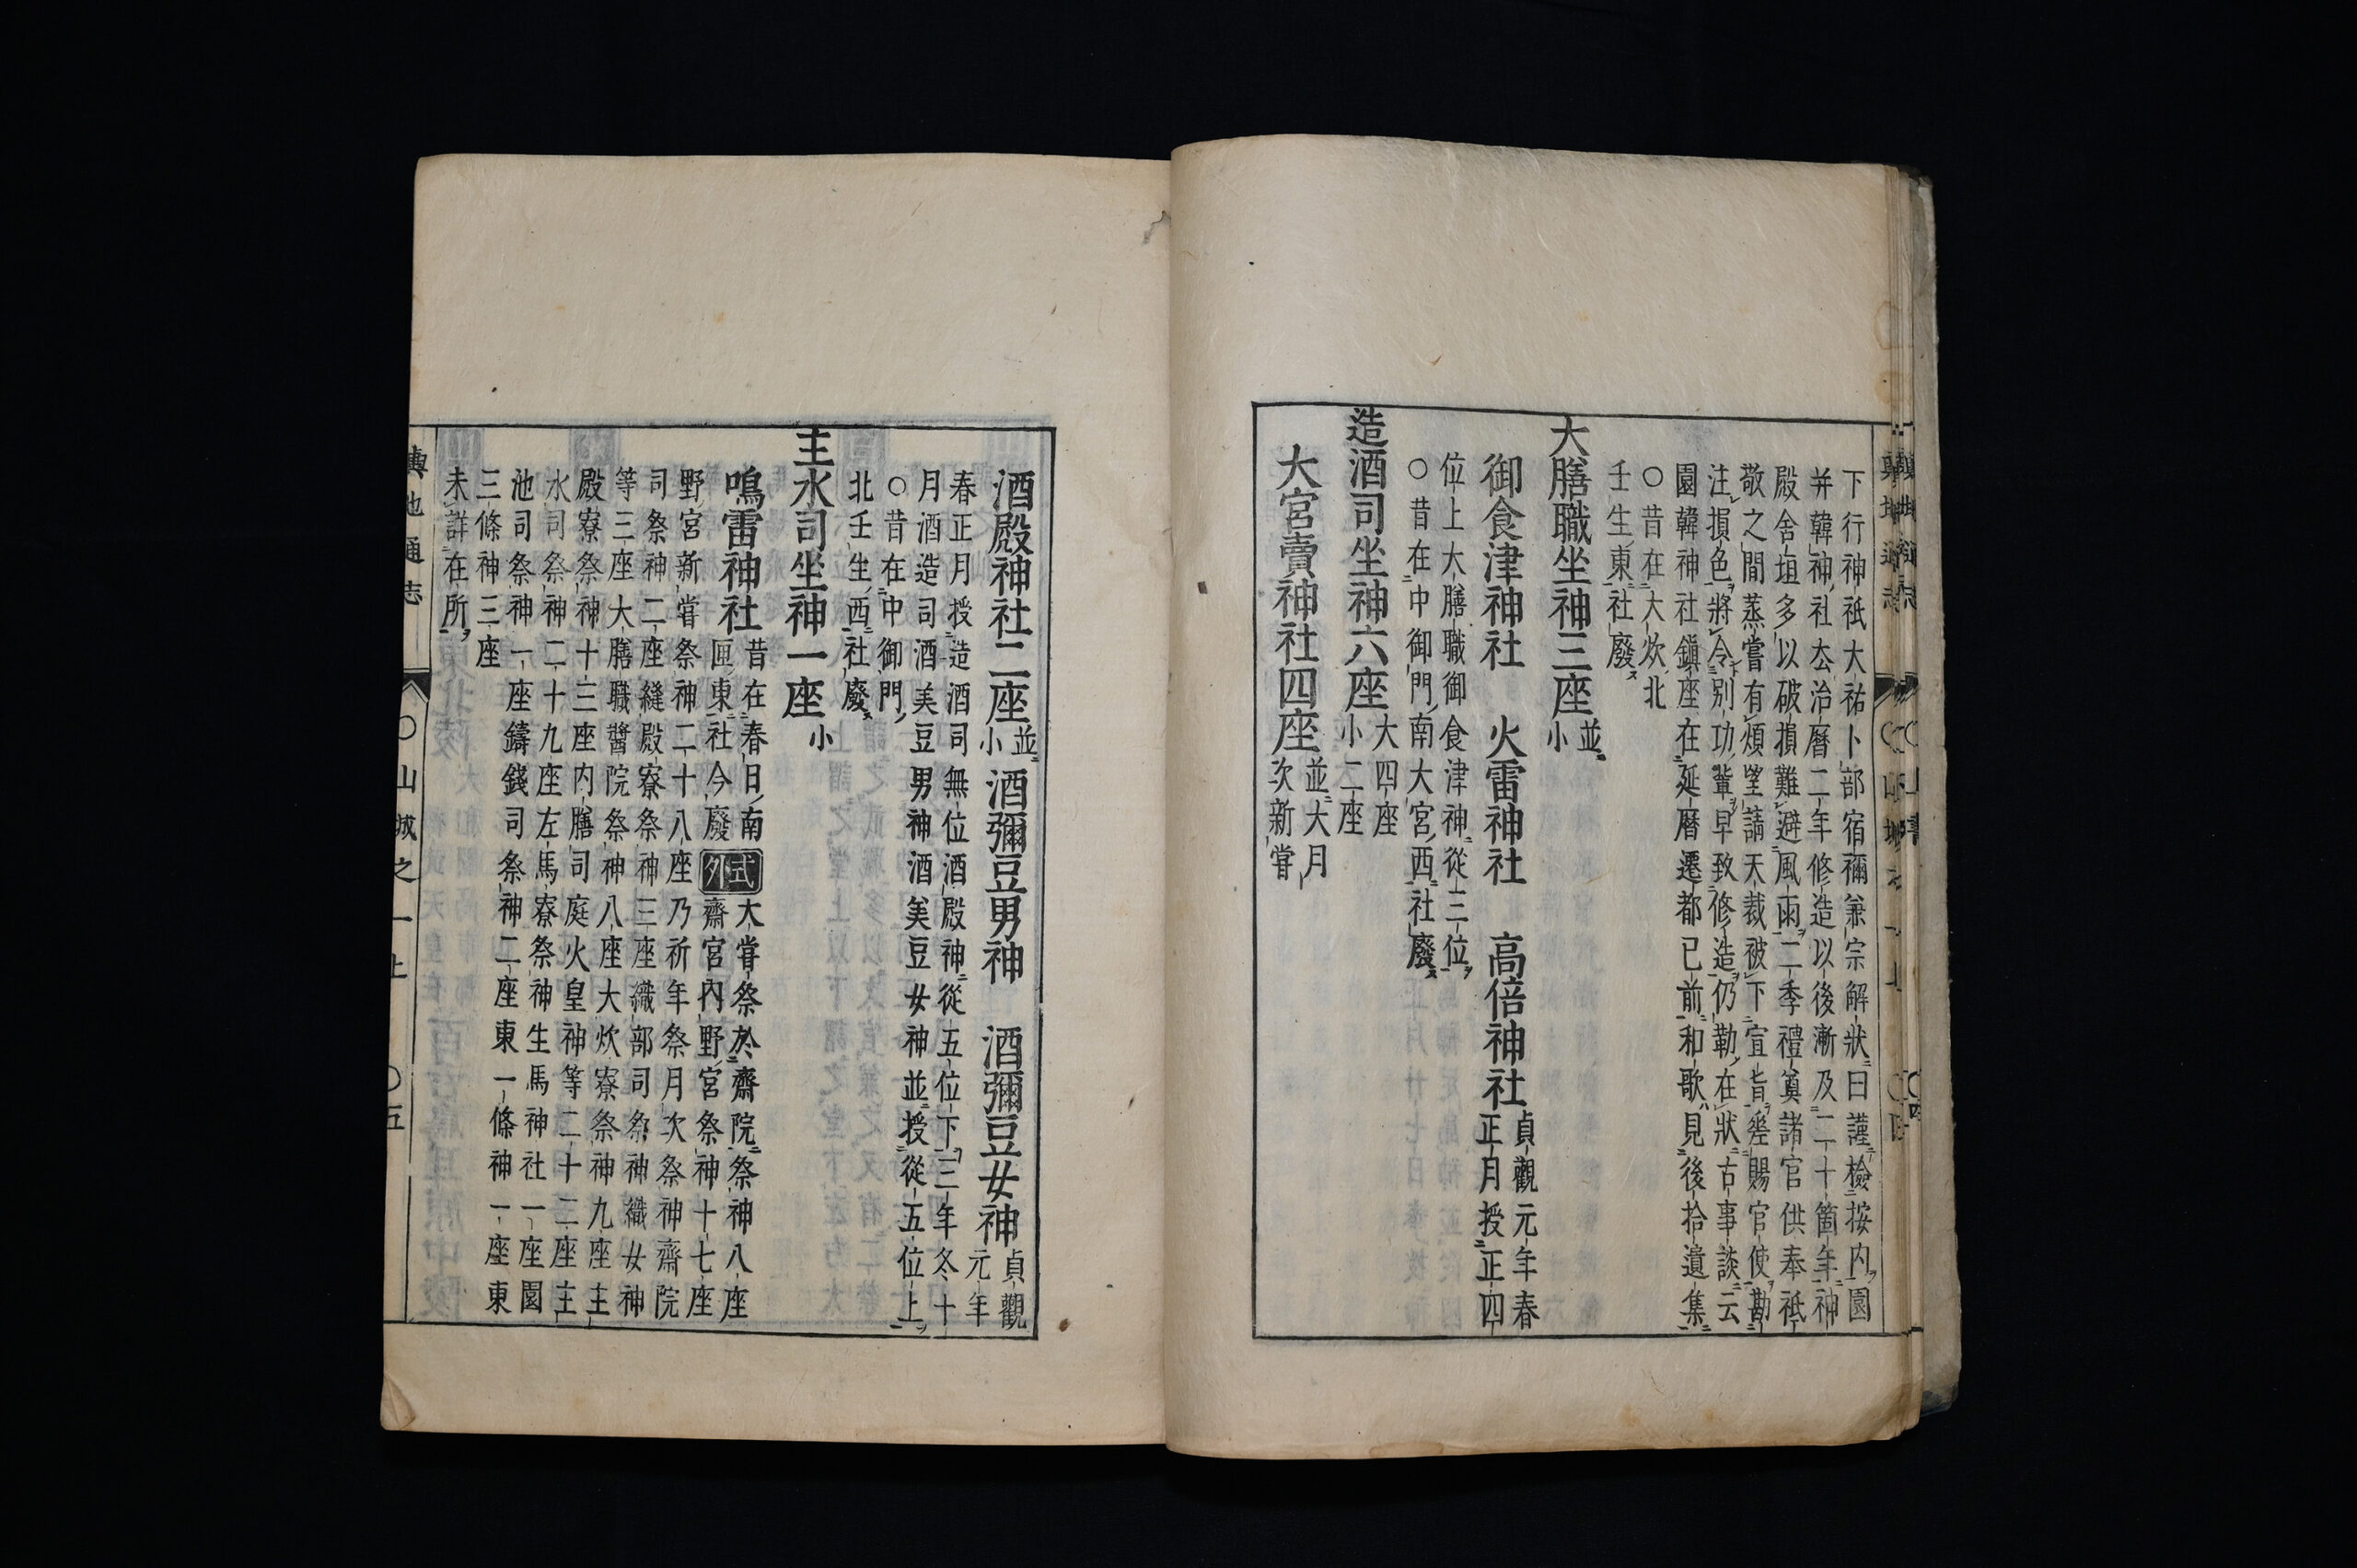 下行神祇大祐卜部宿禰兼宗解狀曰謹檢按内園
并韓神社厺治曆二年修造以後漸及二十箇年神
殿舍垣多以破損難避風雨二季禮奠諸官供奉祗
敬之間蒸嘗有煩望請天裁被下宣旨差賜官使勘
注損色將令别功輩早致修造仍勒在狀古事談云
園韓神社鎭座在延曆遷都已前和歌見後拾遺集
○昔在大炊北
壬生東社廢
大膳職坐神三座並小
御食津神社 火雷神社 高倍神社貞觀元年春
正月授正四
位上大膳職御食津神從三位
○昔在中御門南大宮西社廢
造酒司坐神六座大四座
小二座
大宮賣神社四座並大月
次新嘗
酒殿神社二座並小 酒彌豆男神 酒彌豆女神貞觀
元年
春正月授造酒司無位酒殿神從五位下三年冬十
月酒造司酒美豆男神酒美豆女神並授從五位上
○昔在中御門
北壬生西社廢
主水司坐神一座小
鳴雷神社昔在春日南
匣東社今廢
式外
大嘗祭於齋院祭神八座
齋宮内野宮祭神十七座
野宮新嘗祭神二十八座乃祈年祭月次祭神齋院
司祭神二座縫殿寮祭神三座織部司祭神織女神
等三座大膳職醬院祭神八座大炊寮祭神九座主
殿寮祭神十三座内膳司庭火皇神等二十二座主
水司祭神二十九座左馬寮祭神生馬神社一座園
池司祭神一座鑄錢司祭神二座東一條神一座東
三條神三座
未詳在所
輿地通志 ○山城之一上 ○五